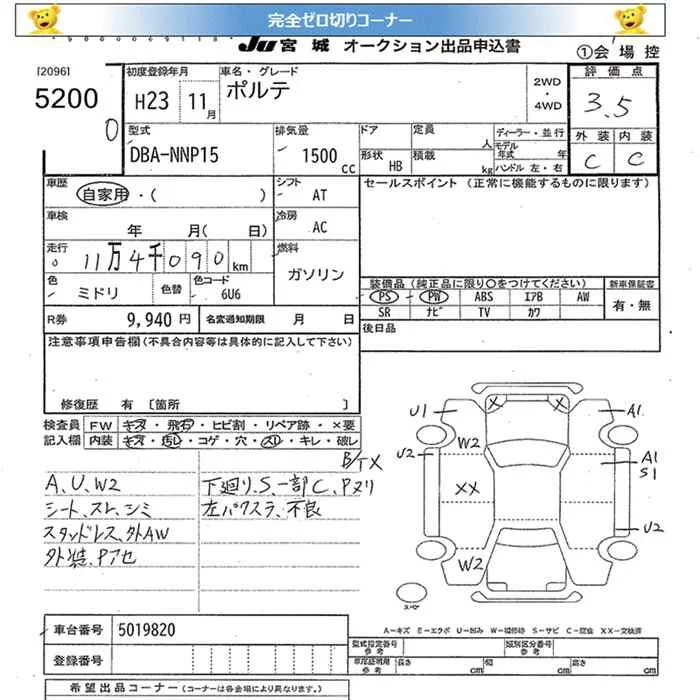 完全ゼロ切りコーナー
JU 宮城 オークション出品申込書
①会場控
[2096]
5200
0
初度登録年月
H23 11月
車名・グレード
ポルテ
2WD
・
4WD
評価点
3.5
外装 内装
C C
型式
DBA-NNP15
排気量
1500cc
ドア
定員 人
形状 HB
積載 kg
ディーラー・並行
モデル年式 年
ハンドル 左・右
車歴
自家用・( )
シフト
AT
セールスポイント (正常に機能するものに限ります)
車検
年 月( 日)
冷房
AC
走行
11万4千090km
燃料
ガソリン
色
ミドリ
色替
色コード
6U6
装備品(純正品に限り○をつけてください)
新車保証書
PS PW ABS エアB AW
SR ナビ TV カワ
有・無
R券 9,940円
名変通知期限 月 日
後日品
注意事項申告欄(不具合内容等は具体的に記入して下さい)
修復歴 有 〔箇所 〕
検査員記入欄
FW キズ・飛石・ヒビ割・リペア跡・×要
内装 キズ・汚レ・コゲ・穴・スレ・キレ・破レ
B/TX
A、U、W2
シート、スレ、シミ
スタッドレス、外AW
外装、Pアセ
下廻り、S、一部C、Pヌリ
左パワスラ、不良
U1
X X
A1
U2
W2
A1
S1
XX
U2
W2
スペア
A-キズ E-エクボ U-凹み W-補修跡 S-サビ C-腐食 XX-交換済
車台番号 5019820
登録番号
型式指定番号
参考
類別区分番号
参考
車庫証明用
参考
長さ cm
幅 cm
高さ cm
希望出品コーナー (コーナーは各会場により異なります。)